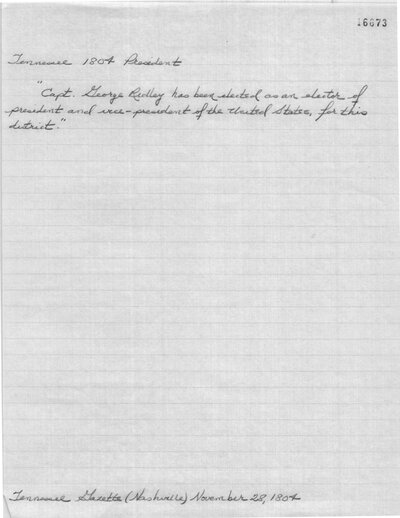 16673
Tennessee 1804 President
"Capt. George Ridley has been elected as an elector of
president and vice-president of the United States, for this
district."
Tennessee Gazette (Nashville) November 28, 1804